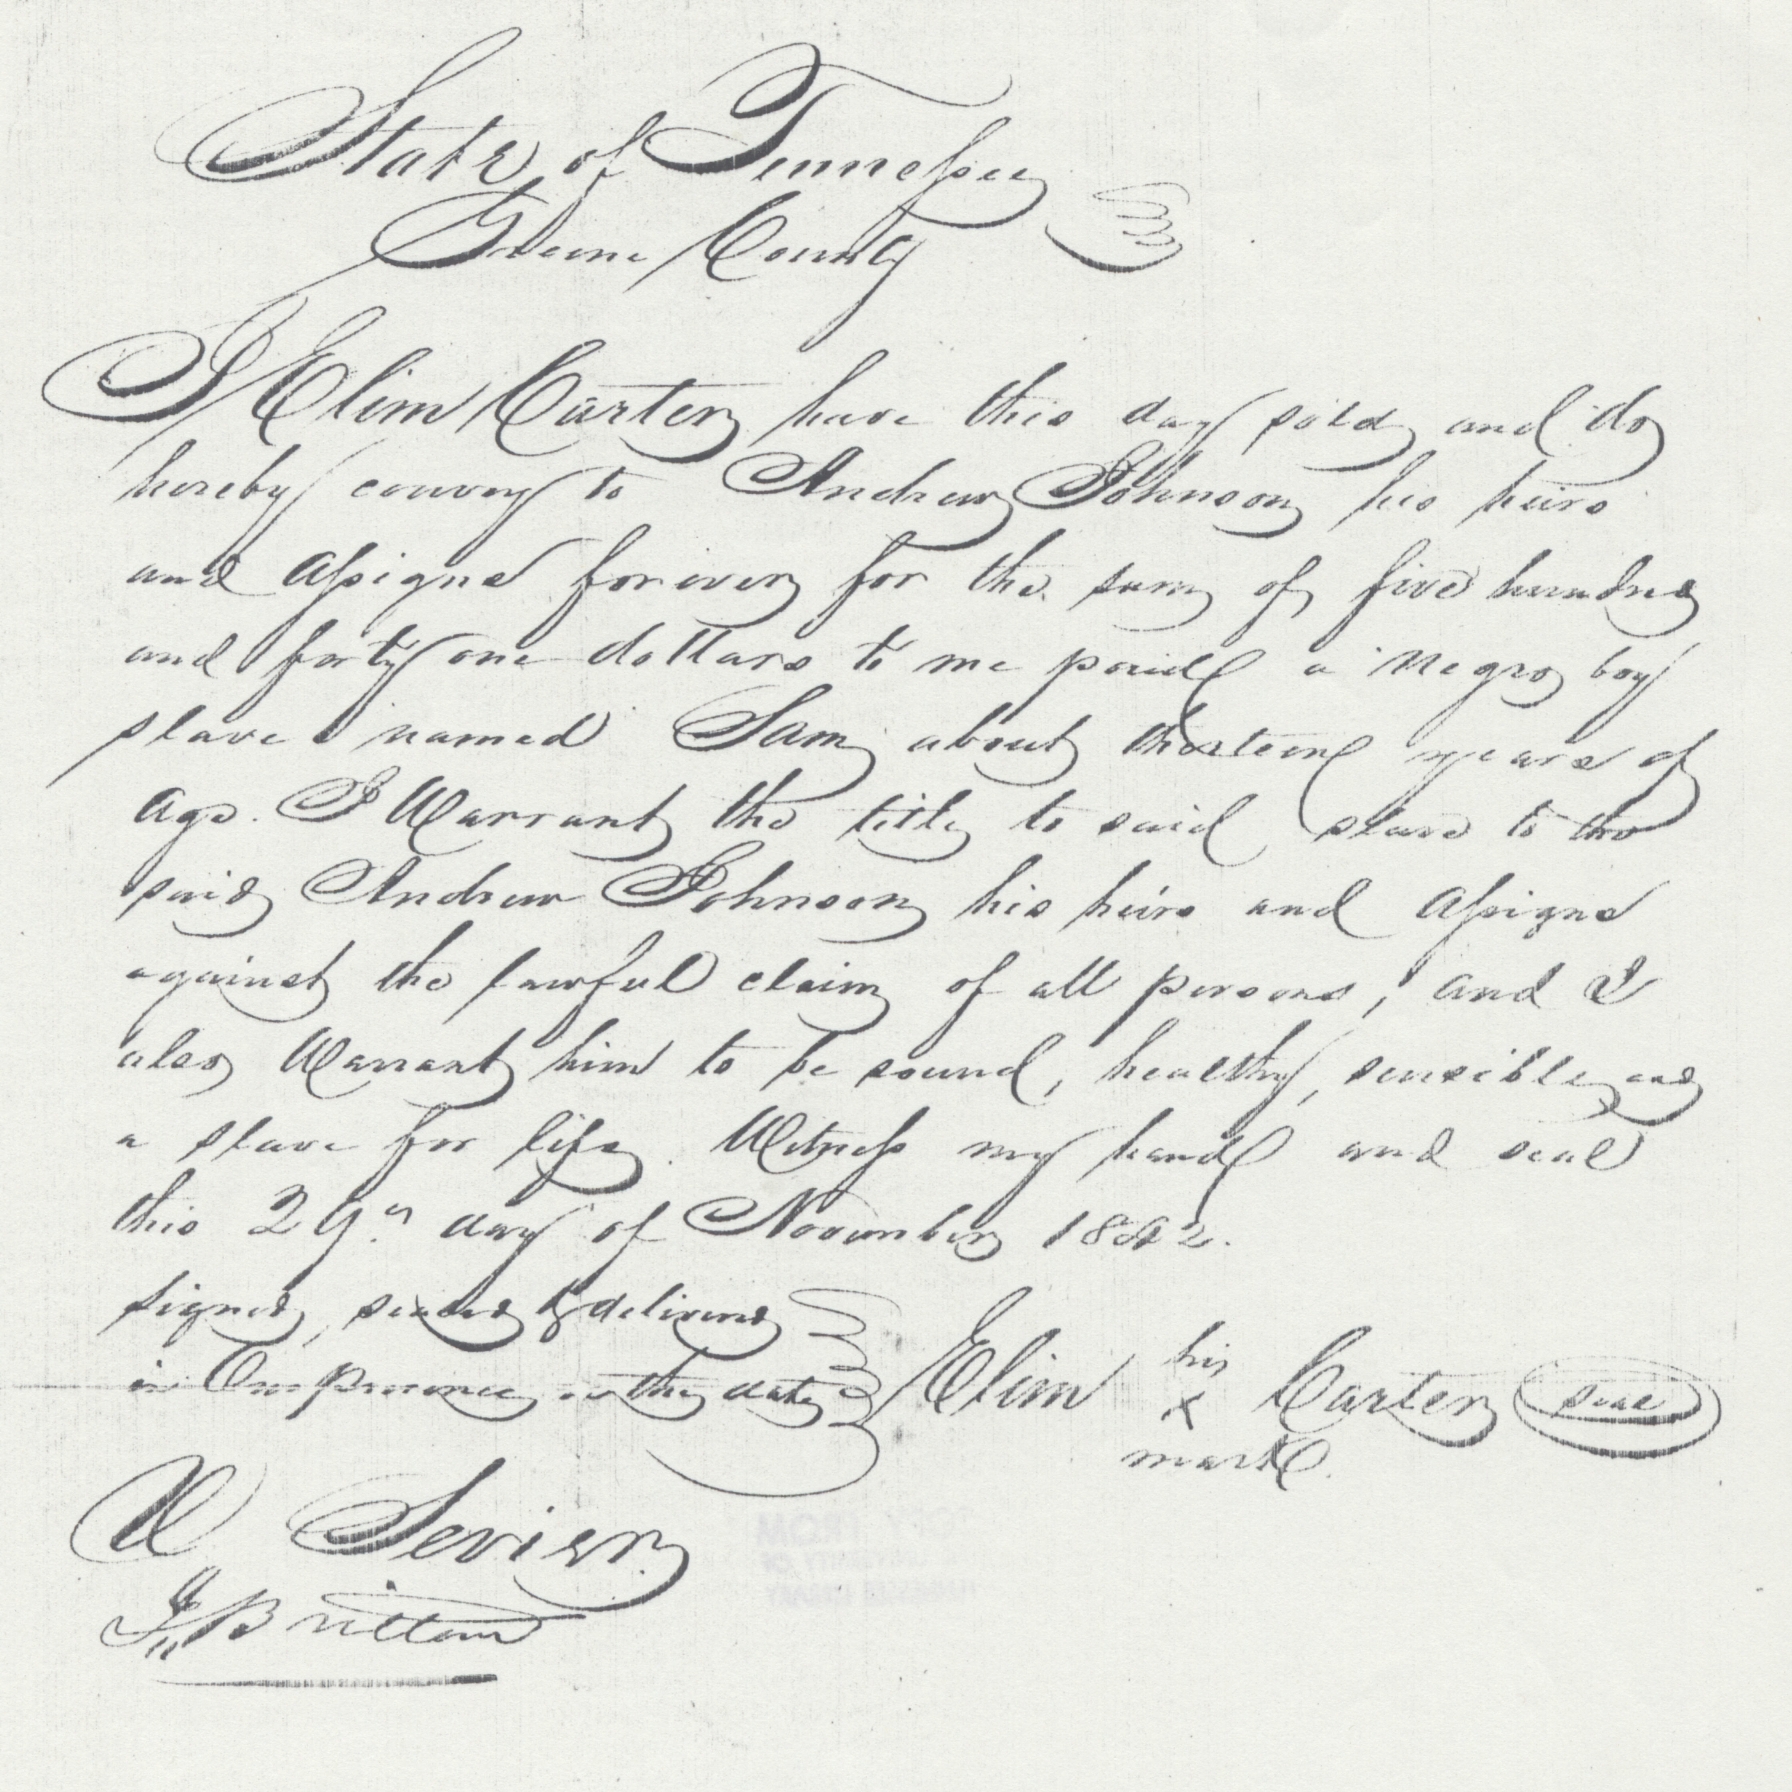 State of Tennessee
Greene County
I Elim Carter have this day sold and do
hereby convey to Andrew Johnson his heirs
and assigns forever for the sum of five hundred
and forty one dollars to me paid a negro boy
slave named Sam about thirteen years of
age. I Warrant the title to said slave to the
said Andrew Johnson his heirs and assigns
against the lawful claim of all persons, and I
also Warrant him to be sound, healthy, sensible and
a slave for life. Witness my hand and seal
this 29th day of November 1842.
signed, sealed & delivered
in Our presence on the date
Elim his x mark Carter seal
V Sevier
J Britton